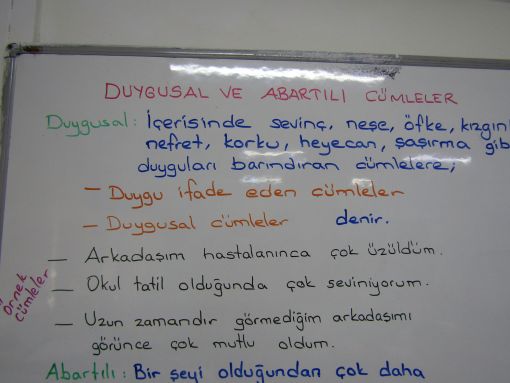 DUYGUSAL VE ABARTILI CÜMLELER
Duygusal: İçerisinde sevinç, neşe, öfke, kızgın
nefret, korku, heyecan, şaşırma gib
duyguları barındıran cümlelere;
- Duygu ifade eden cümleler
- Duygusal cümleler denir.
— Arkadaşım hastalanınca çok üzüldüm.
Örnek
Cümleler
— Okul tatil olduğunda çok seviniyorum.
— Uzun zamandır görmediğim arkadaşımı
görünce çok mutlu oldum.
Abartılı: Bir şeyi olduğundan çok daha